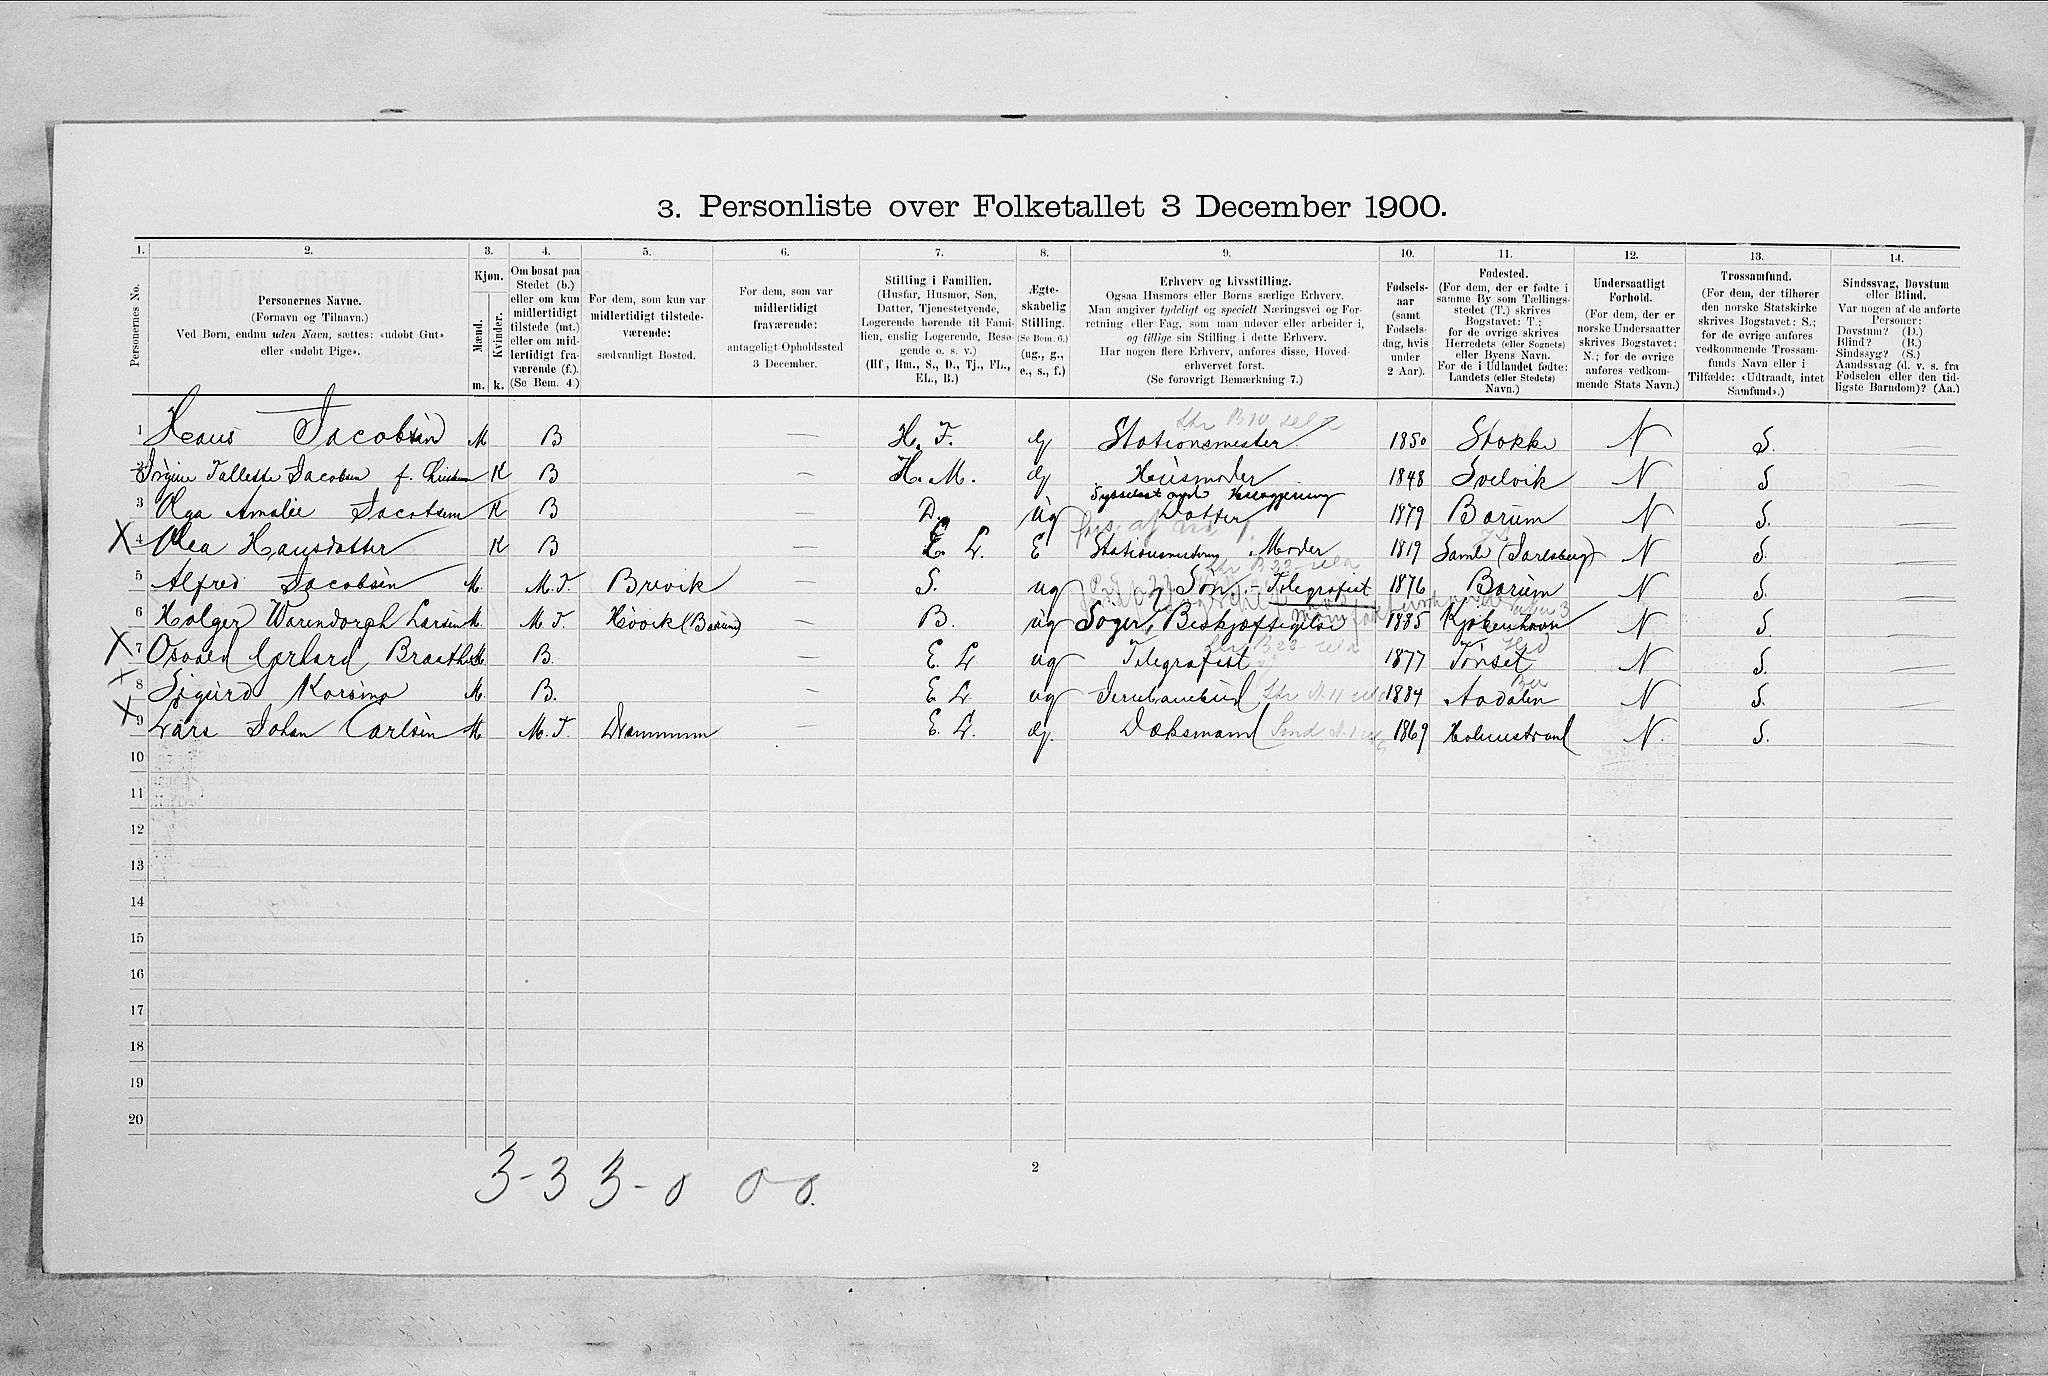 3. Personliste over Folketallet 3 December 1900.
1. 2. 3. 4. 5. 6. 7. 8. 9. 10. 11. 12. 13. 14.
Personernes No.
Personernes Navne.
(Fornavn og Tilnavn.)
Ved Børn, endnu uden Navn, sættes: «udøbt Gut»
eller «udøbt Pige».
Kjøn.
Mænd.
Kvinder.
m. k.
Om bosat paa
Stedet (b.)
eller om kun
midlertidigt
tilstede (mt.)
eller om mid-
lertidigt fra-
værende (f.).
(Se Bem. 4.)
For dem, som kun var
midlertidigt tilstede-
værende:
sædvanligt Bosted.
For dem, som var
midlertidigt
fraværende:
antageligt Opholdssted
3 December.
Stilling i Familien.
(Husfar, Husmor, Søn,
Datter, Tjenestetyende,
Logerende hørende til Fami-
lien, enslig Logerende, Besø-
gende o. s. v.)
(Hf., Hm., S., D., Tj., FL.,
EL., B.)
Ægte-
skabelig
Stilling.
(Se Bem. 6.)
(ug., g.,
e., s., f.)
Erhverv og Livsstilling.
Ogsaa Husmors eller Børns særlige Erhverv.
Man angiver tydeligt og specielt Næringsvei og For-
retning eller Fag, som man udøver eller arbeider i,
og tillige sin Stilling i dette Erhverv.
Har nogen flere Erhverv, anføres disse, Hoved-
erhvervet forst.
(Se forøvrigt Bemærkning 7.)
Fødsels-
aar
(samt
Fødsels-
dag, hvis
under
2 Aar).
Fødested.
(For dem, der er fødte i
samme By som Tællings-
stedet (T.) skrives
Bogstavet: T;
for de øvrige skrives
Herredets (eller Sognets)
eller Byens Navn.
For de i Udlandet fødte:
Landets (eller Stedets)
Navn.)
Undersaatligt
Forhold.
(For dem, der er
norske Undersaatter
skrives Bogstavet:
N.; for de øvrige
anføres vedkom-
mende Stats Navn.)
Trossamfund.
(For dem, der tilhører
den norske Statskirke
skrives Bogstavet: S.;
for de øvrige anføres
vedkommende Trossam-
funds Navn eller i
Tilfælde: «Udtraadt, intet
Samfund».)
Sindssvag, Døvstum
eller Blind.
Var nogen af de anførte
Personer:
Døvstum? (D.)
Blind? (B.)
Sindssyg? (S.)
Aandssvag (d. v. s. fra
Fødselen eller den tid-
ligste Barndom)? (Aa.)
1 Hans Jacobsen M B — H. F. G Stationsmester 1850 Stokke N S. —
2 Jacobsen f. K B — H. M. G Husmoder 1848 Svelvik N S —
Sysselsat med Husgjerning
3 Olga Amalie Jacobsen K B — D. ug Datter 1879 Bærum N S. —
X 4 Olea Hansdatter K B — E. L. E Moder 1819 (Jarlsberg) N S. —
5 Alfred Jacobsen M. M. T. Brevik — S. ug Søn, Telegrafist 1876 Bærum N S. —
6 Holger Warendorph Larsen M M. T Høvik (Bærum) — B. ug Søger Beskjæftigelse 1885 Kjøbenhavn N S. —
X 7 Osvald Gerhard M. B. — E. L ug Telegrafist 1877 Tønset N S. —
X 8 Sigurd Korsmo M. B. — E. L ug Jernbanebud 1884 Aadalen N S. —
X 9 Lars Johan Carlsen M. M. T. Drammen — E. L. G. Dæksmand 1869 Holmestrand N. S. —
10
11
12
13
14
15
16
17
18
19
20
3-3 3-0 0-0.
2